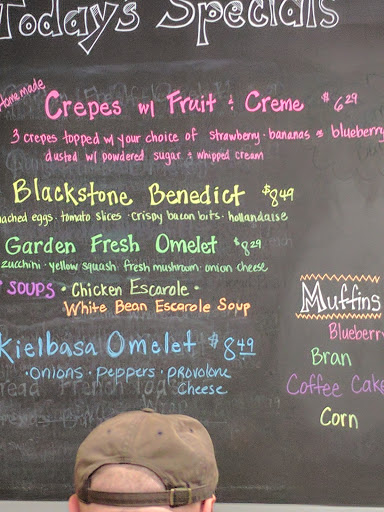 Today's Specials
Homemade
Crepes w/ Fruit + Creme $6.29
3 crepes topped w/ your choice of strawberry · bananas or blueberry
dusted w/ powdered sugar + whipped cream
Blackstone Benedict $8.49
ached eggs · tomato slices · crispy bacon bits · hollandaise
Garden Fresh Omelet $8.29
zucchini · yellow squash fresh mushroom · onion cheese
SOUPS · Chicken Escarole ·
White Bean Escarole Soup
Kielbasa Omelet $8.49
· onions · peppers · provolone
cheese
Muffins
Blueberry
Bran
Coffee Cake
Corn